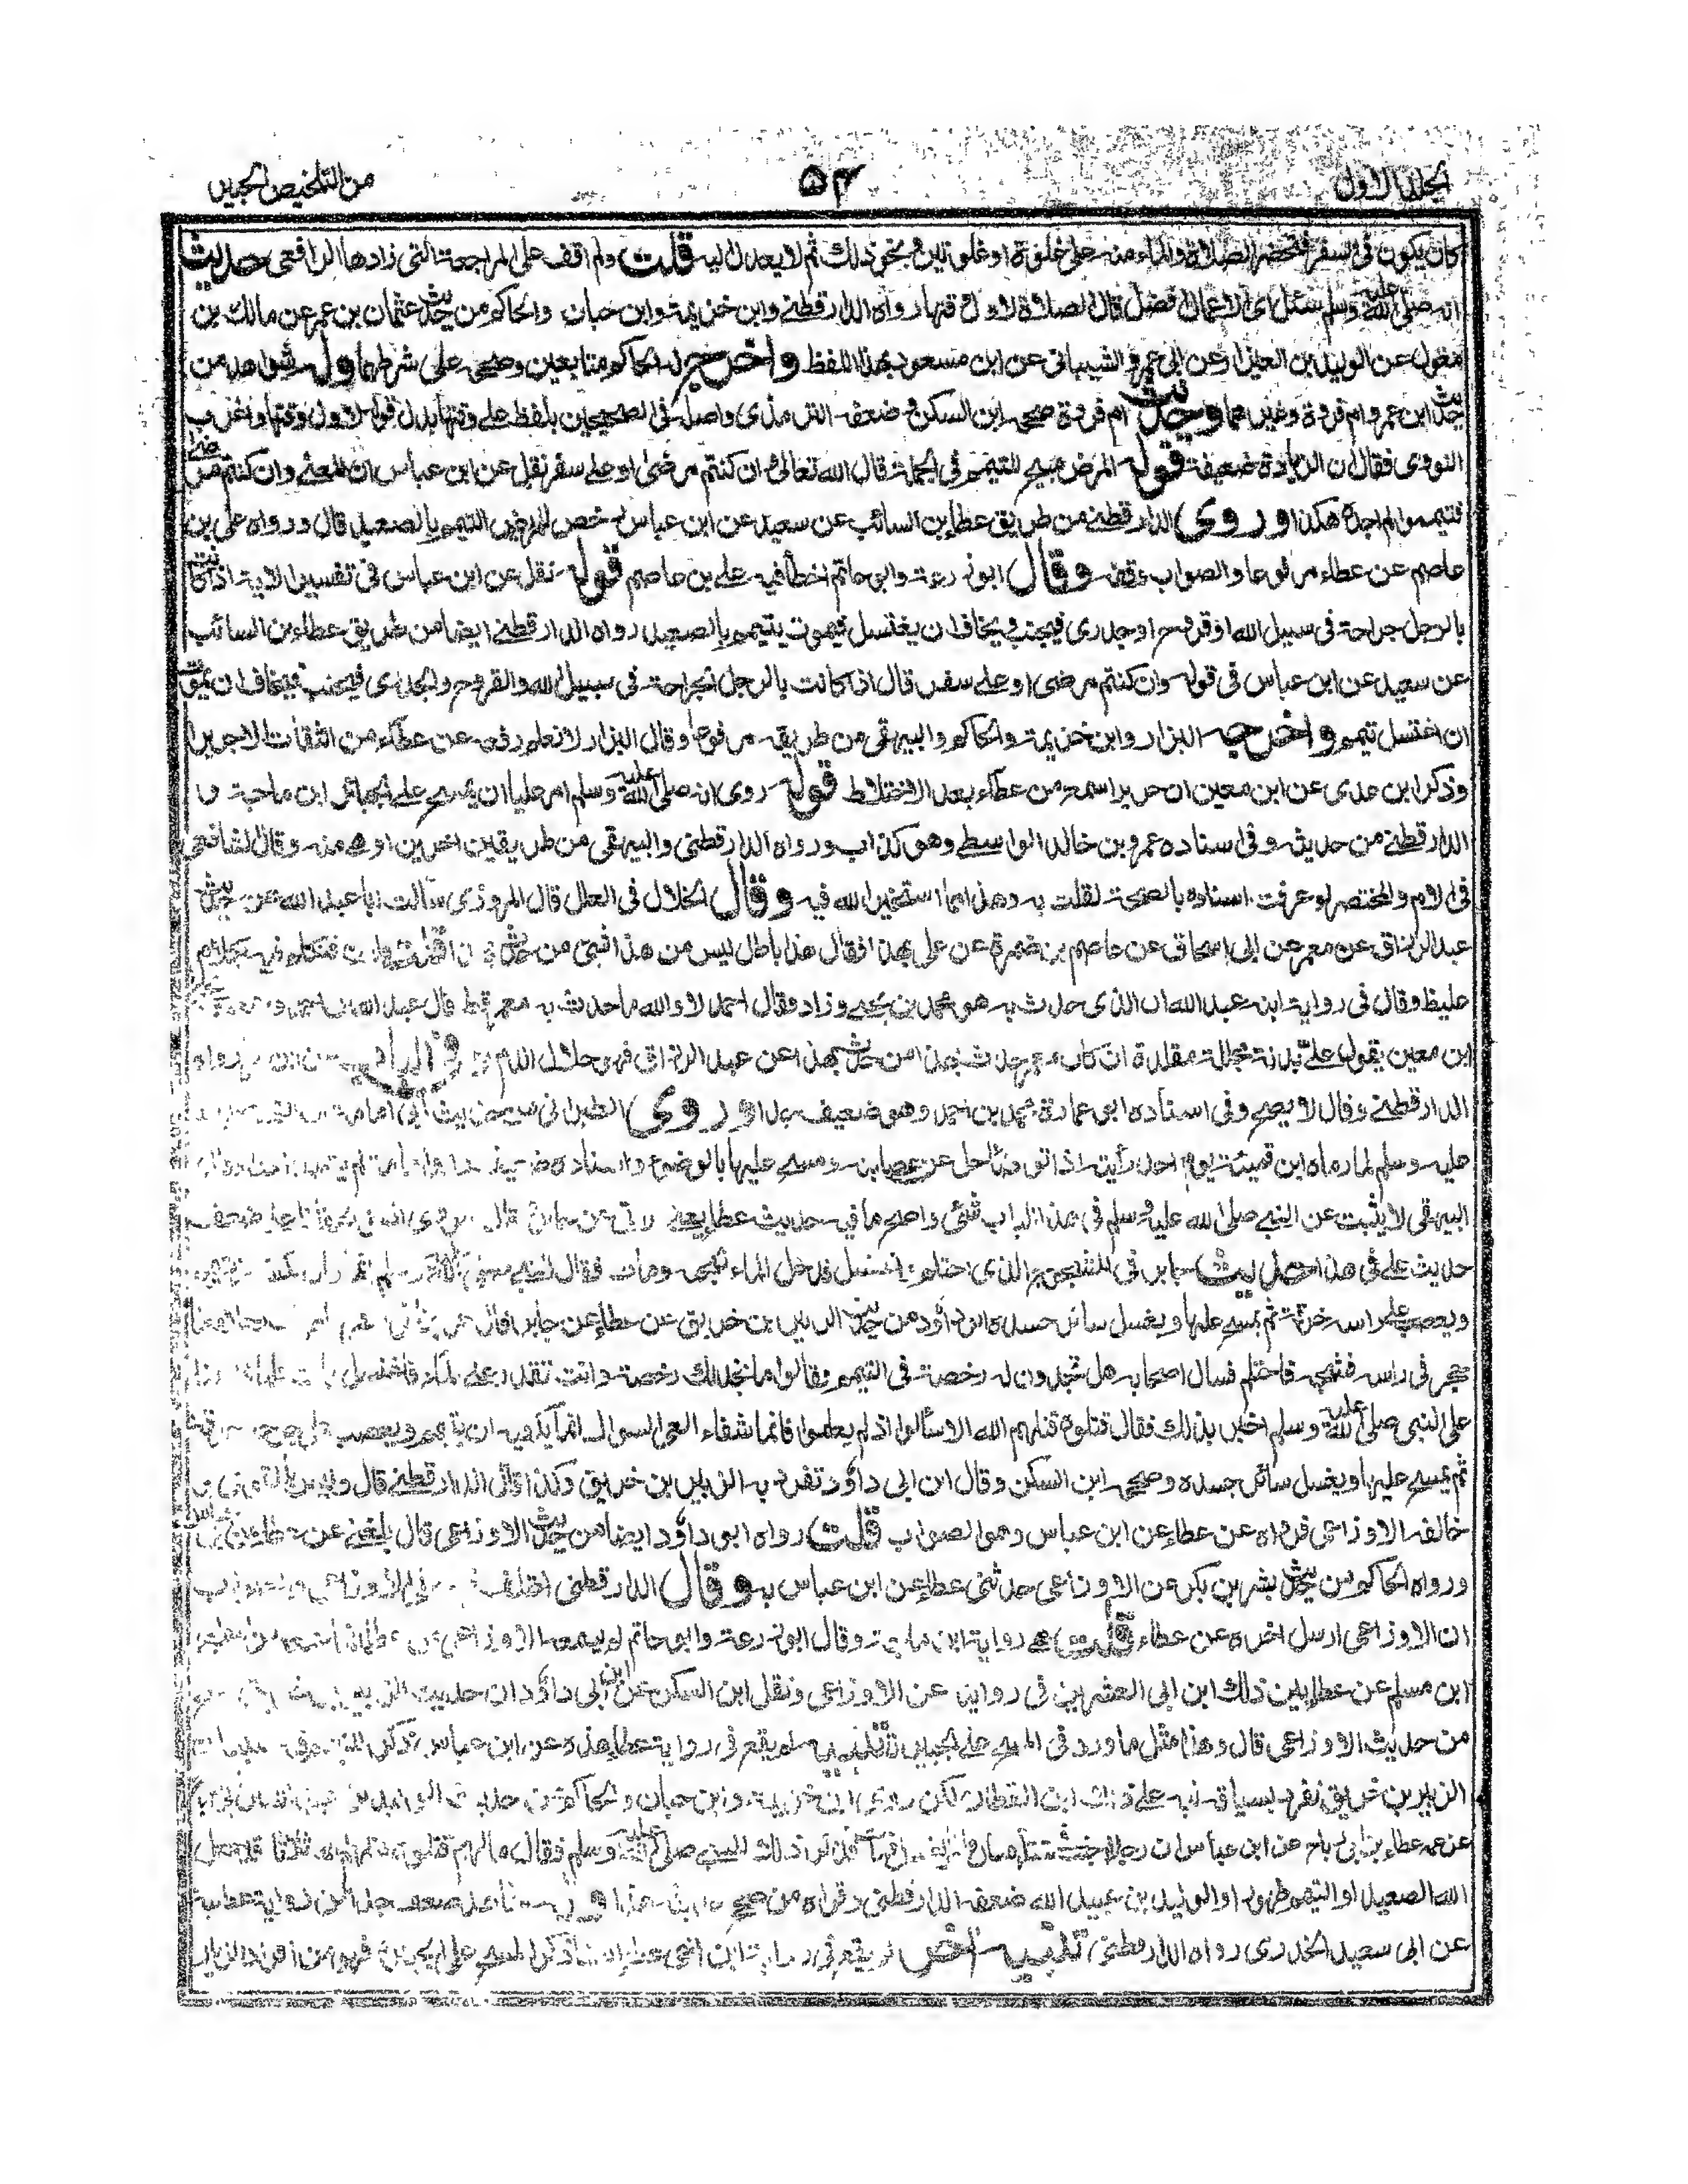 الجلد الاول
٥٣
من التلخيص الحبير
كان يكون في السفر فتحضر الصلاة والماء منه على غلوة او غلوتين ونحو ذلك ثم لا يعدل اليه قلت ولم اقف على المراجعة التي زادها الرافعي حديث
انه صلى الله عليه وسلم سئل اى الاعمال افضل قال الصلاة لاول وقتها رواه الدارقطني وابن خزيمة وابن حبان والحاكم من حديث عثمان بن عمر عن مالك بن
مغول عن الوليد بن العيزار عن ابي عمرو الشيباني عن ابن مسعود بهذا اللفظ واخرجه الحاكم متابعين وصححه على شرطهما وله شواهد من
حديث ابن عمر وام فروة وغيرهما وحديث ام فروة صححه ابن السكن وضعفه الترمذى واصله في الصحيحين بلفظ على وقتها بدل قوله لاول وقتها واغرب
النووى فقال ان الزيادة ضعيفة قوله المرض مبيح للتيمم في الجملة قال الله تعالى ان كنتم مرضى او على سفر نقل عن ابن عباس ان المعنى وان كنتم مرضى
فتيمموا المراجع هكذا وروى الدارقطني من طريق عطاء بن السائب عن سعيد عن ابن عباس رخص للمريض التيمم بالصعيد قال ورواه على بن
عاصم عن عطاء مرفوعا والصواب وقفه وقال ابو زرعة وابو حاتم اخطأ فيه على بن عاصم قوله نقل عن ابن عباس في تفسير الاية اذا كانت
بالرجل جراحة في سبيل الله او قروح او جدرى فيجنب ويخاف ان يغتسل فيموت يتيمم بالصعيد رواه الدارقطني ايضا من طريق عطاء بن السائب
عن سعيد عن ابن عباس في قوله وان كنتم مرضى او على سفر قال اذا كانت بالرجل الجراحة في سبيل الله والقروح والجدرى فيجنب فيخاف ان يموت
ان اغتسل تيمم واخرجه البزار وابن خزيمة والحاكم والبيهقي من طريقه مرفوعا وقال البزار لا نعلم رفعه عن عطاء من الثقات الا جريرا
وذكر ابن عدى عن ابن معين ان جريرا سمع من عطاء بعد الاختلاط قوله روى انه صلى الله عليه وسلم امر عليا ان يمسح على الجبائر ابن ماجة و
الدارقطني من حديثه وفي اسناده عمرو بن خالد الواسطى وهو كذاب ورواه الدارقطني والبيهقي من طريقين اخرين اوهى منه وقال الشافعي
في الام والمختصر لو عرفت اسناده بالصحة لقلت به وهذا مما استخير الله فيه وقال الخلال في العلل قال المروذى سألت ابا عبد الله عن حديث
عبد الرزاق عن معمر عن ابي اسحاق عن عاصم بن ضمرة عن علي بهذا فقال هذا باطل ليس من هذا شيئ من حدث بهذا قلت فلان فتكلم فيه بكلام
غليظ وقال في رواية ابنه عبد الله ان الذى حدث به هو محمد بن يحيى وزاد فقال احمد لا والله ما حدث به معمر قط قال عبد الله بن احمد وسمعت
ابن معين يقول على بدنة مجللة مقلدة ان كان معمر حدث بهذا من حدث بهذا عن عبد الرزاق فهو حلال الدم وفي الباب عن ابن عمر رواه
الدارقطني وقال لا يصح وفي اسناده ابو عمارة محمد بن احمد وهو ضعيف جدا وروى الطبراني من حديث ابي امامة عن النبي صلى الله
عليه وسلم لما رماه ابن قميئة يوم احد رأيته اذا توضأ حل عن عصابته ومسح عليها بالوضوء واسناده ضعيف وابو امامة لم يشهد احدا وقال
البيهقي لا يثبت عن النبي صلى الله عليه وسلم في هذا الباب شئى واصح ما فيه حديث عطاء يعني
حديث علي في هذا حديث جابر في المشجوج الذى احتلم واغتسل فدخل الماء شجته ومات فقال النبي صلى الله عليه وسلم انما كان يكفيه ان يتيمم
ويعصب على راسه خرقة ثم يمسح عليها ويغسل سائر جسده ابو داود من حديث الزبير بن خريق عن عطاء عن جابر قال خرجنا في سفر
حجر في راسه فشجه فاحتلم فسال اصحابه هل تجدون له رخصة في التيمم فقالوا ما نجد لك رخصة وانت تقدر على الماء فاغتسل
على النبي صلى الله عليه وسلم اخبر بذلك فقال قتلوه قتلهم الله الا سألوا اذ لم يعلموا فانما شفاء العي السوال انما يكفيه ان يتيمم ويعصب على جرحه خرقة
ثم يمسح عليها ويغسل سائر جسده وصححه ابن السكن وقال ابن ابي داود تفرد به الزبير بن خريق وكذا قال الدارقطني قال وليس بالقوى
خالفه الاوزاعى فرواه عن عطاء عن ابن عباس وهو الصواب قلت رواه ابو داود ايضا من حديث الاوزاعى قال بلغني عن عطاء عن ابن عباس
ورواه الحاكم من حديث بشر بن بكر عن الاوزاعى حدثني عطاء عن ابن عباس به وقال الدارقطني اختلف فيه على الاوزاعى والصواب
ان الاوزاعى ارسل اخره عن عطاء قلت هى رواية ابن ماجة وقال ابو زرعة وابو حاتم لم يسمعه الاوزاعى من عطاء انما سمعه من اسمعيل
ابن مسلم عن عطاء بين ذلك ابن ابي العشرين في روايته عن الاوزاعى ونقل ابن السكن عن ابن ابي داود ان حديث الزبير
من حديث الاوزاعى قال وهذا مثل ما ورد في المسح على الجبيرة تنبيه لم يقع في رواية عطاء هذه عن ابن عباس ذكر التيمم فيه
الزبير بن خريق تفرد بسياقه نبه على ذلك ابن القطان لكن روى ابن خزيمة وابن حبان والحاكم من حديث الوليد بن عبيد الله بن ابي رباح
عن عمه عطاء بن ابي رباح عن ابن عباس ان رجلا اجنب في شتاء فسأل فامر بالغسل فمات فذكر ذلك للنبي صلى الله عليه وسلم فقال ما لهم قتلوه قتلهم الله ثلاثا قد جعل
الله الصعيد او التيمم طهورا والوليد بن عبيد الله ضعفه الدارقطني وقواه من صحح حديثه
عن ابي سعيد الخدرى رواه الدارقطني تنبيه اخر لم يقع في رواية ابن ابي عطاء ايضا ذكر المسح على الجبيرة فهو من افراد الزبير